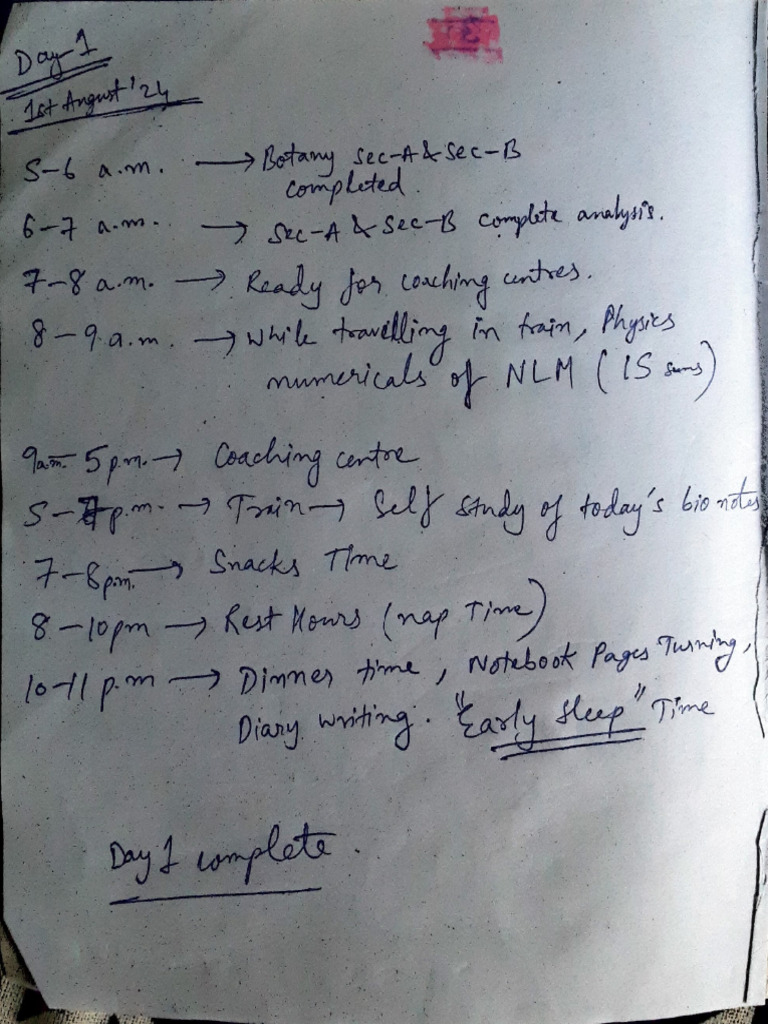 Day-1
1st August '24
5-6 a.m. → Botany Sec-A & Sec-B
completed.
6-7 a.m. → Sec-A & Sec-B complete analysis.
7-8 a.m. → Ready for coaching centres.
8-9 a.m. → While travelling in train, Physics
numericals of NLM (15 sums)
9a.m.-5p.m. → Coaching centre
5-7p.m. → Train → Self study of today's bio notes
7-8pm. → Snacks Time
8-10pm → Rest Hours (nap Time)
10-11 p.m → Dinner time, Notebook Pages Turning,
Diary writing. "Early Sleep" Time
Day 1 complete.